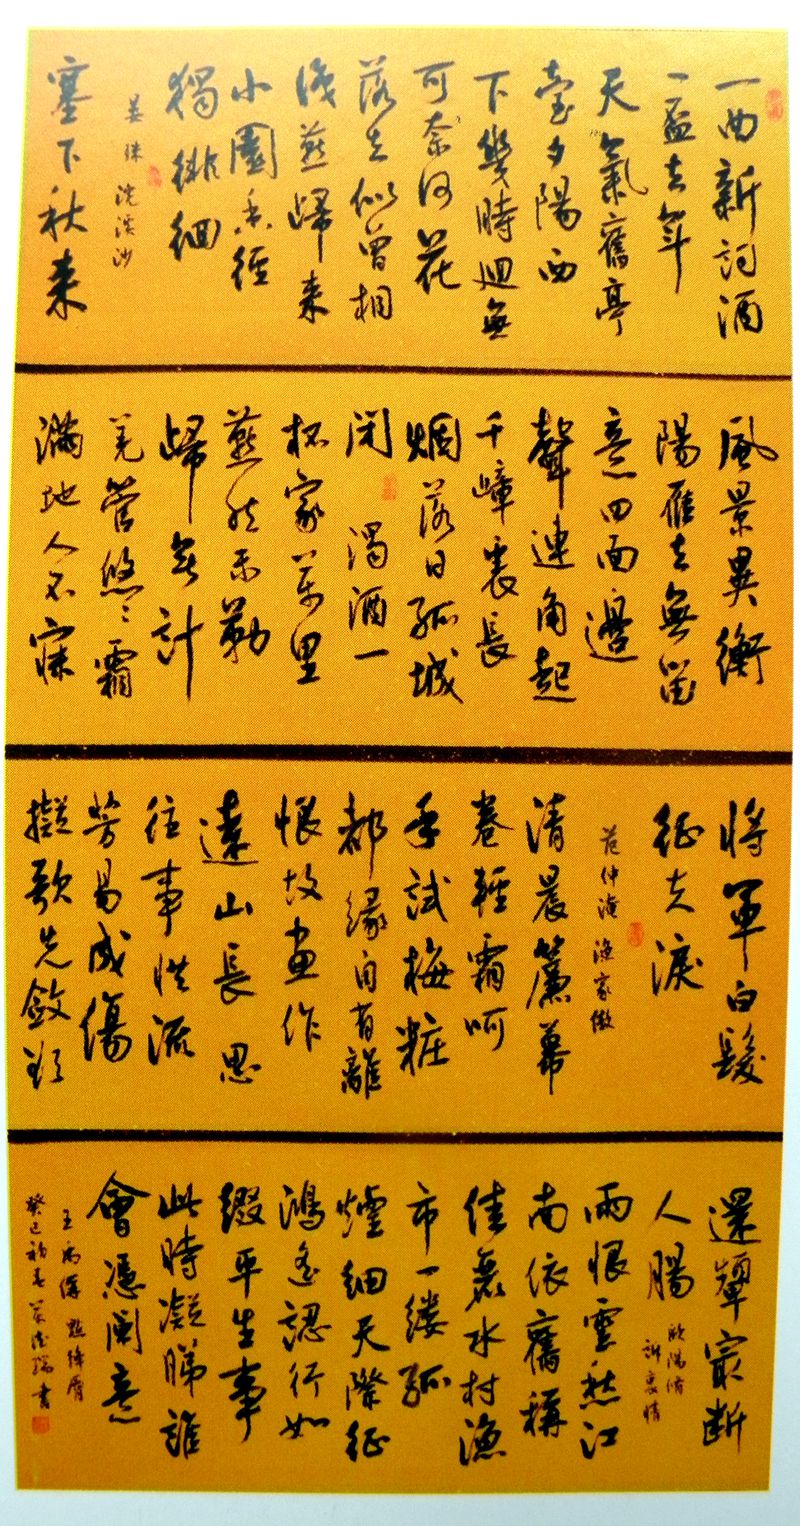 一曲新詞酒
一盃去年
天氣舊亭
臺夕陽西
下幾時迴無
可奈何花
落去似曾相
識燕歸来
小園香徑
獨徘徊
晏殊 浣溪沙
塞下秋来
風景異衡
陽雁去無留
意四面邊
聲連角起
千嶂裏長
烟落日孤城
閉 濁酒一
杯家萬里
燕然未勒
歸無計
羌管悠〻霜
滿地人不寐
將軍白髮
征夫淚
范仲淹 漁家傲
清晨簾幕
卷輕霜呵
手試梅粧
都緣自有離
恨故畫作
遠山長 思
往事惜流
芳易成傷
擬歌先斂
還顰最斷
人腸 歐陽脩
訴衷情
雨恨雲愁江
南依舊稱
佳麗水村漁
市一縷孤
煙細天際征
鴻遙認行如
綴平生事
此時凝睇誰
會憑闌意
王禹偁 點絳脣
癸巳初春 書